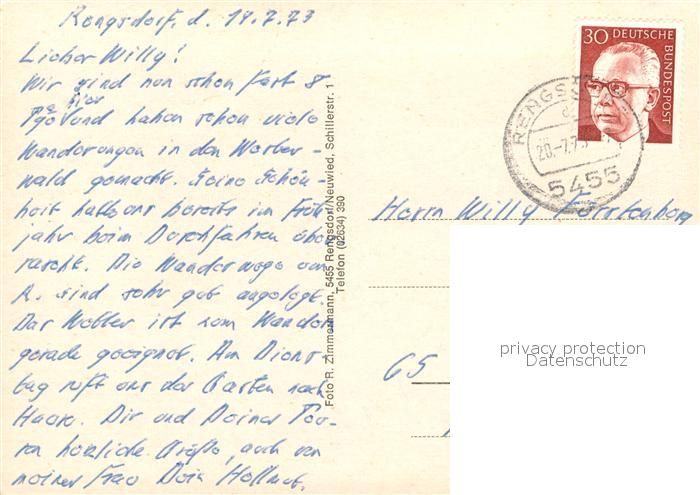 Rengsdorf, d. 19.7.73
Lieber Willy!
Wir sind nun schon fast 8
Tge hier und haben schon viele
Wanderungen in den Wester-
wald gemacht. Seine Schön-
heit hatte uns bereits im Früh
jahr beim Durchfahren über
rascht. Die Wanderwege um
R. sind sehr gut angelegt.
Das Wetter ist zum Wandern
gerade geeignet. Am Diens-
tag ruft uns der Garten nach
Hause. Dir und Deiner
herzliche Grüße, auch von
meiner Frau Dein Hellmut.
Foto R. Zimmermann, 5455 Rengsdorf/Neuwied, Schillerstr. 1
Telefon (02634) 390
30 DEUTSCHE
BUNDESPOST
RENGSD
20.-7.7
5455
Herrn Willy
65
privacy protection
Datenschutz